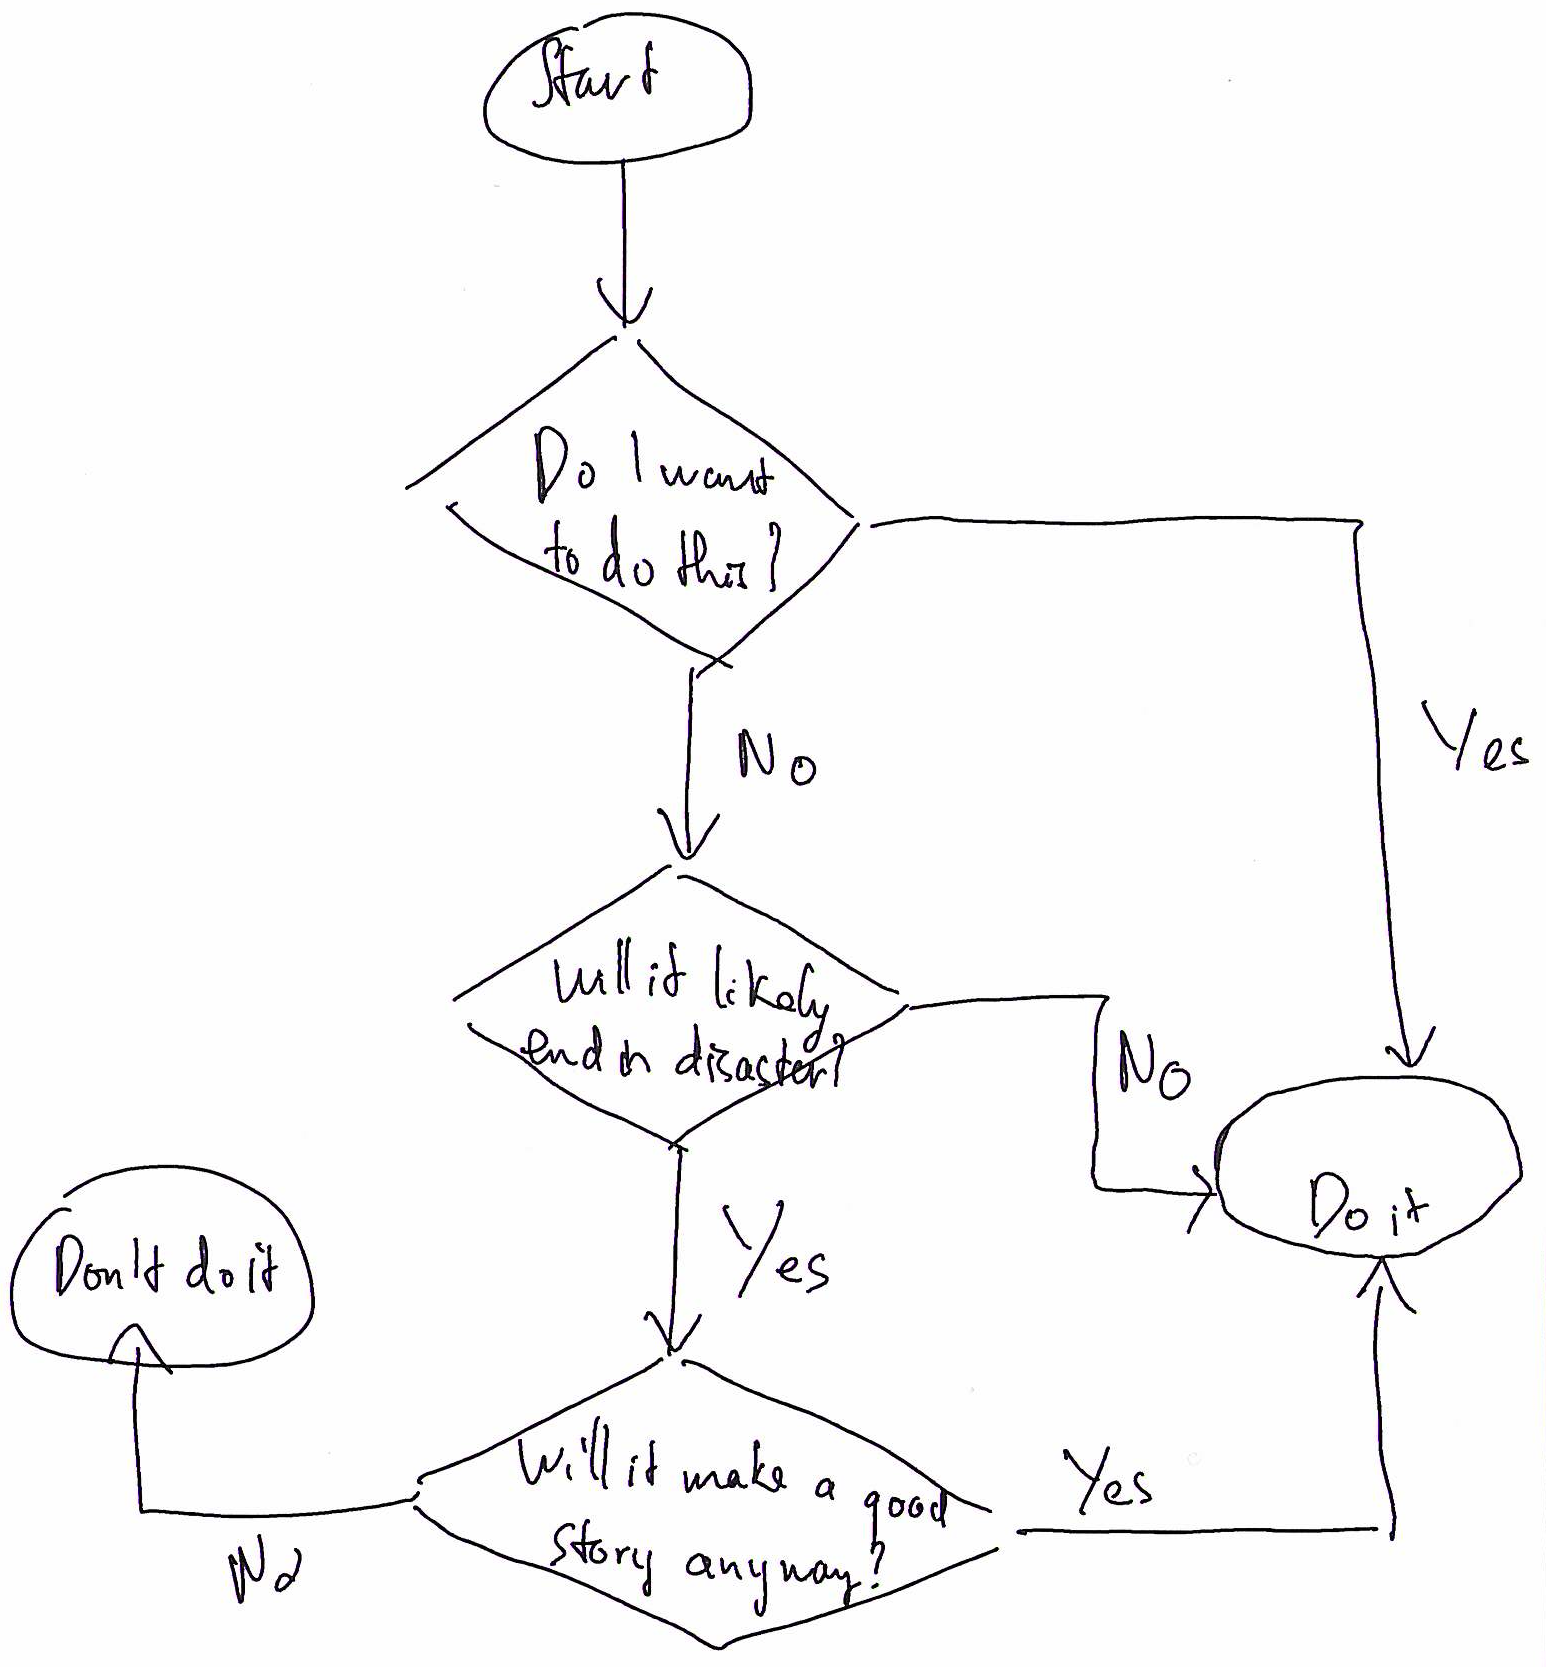 Start
Do I want
to do this?
Yes
No
Will it likely
end in disaster?
No
Do it
Yes
Don't do it
Will it make a good
story anyway?
Yes
No